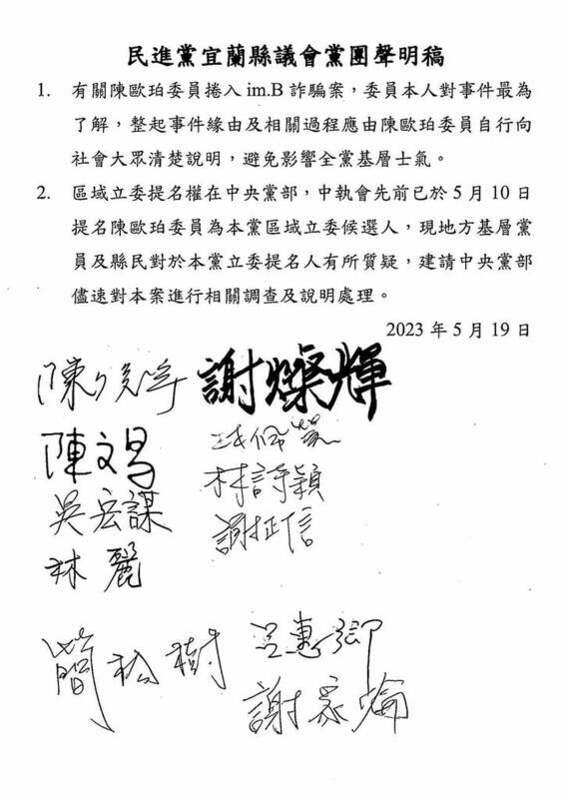 民進黨宜蘭縣議會黨團聲明稿
1. 有關陳歐珀委員捲入 im.B 詐騙案，委員本人對事件最為
了解，整起事件緣由及相關過程應由陳歐珀委員自行向
社會大眾清楚說明，避免影響全黨基層士氣。
2. 區域立委提名權在中央黨部，中執會先前已於 5 月 10 日
提名陳歐珀委員為本黨區域立委候選人，現地方基層黨
員及縣民對於本黨立委提名人有所質疑，建請中央黨部
儘速對本案進行相關調查及說明處理。
2023 年 5 月 19 日
陳 謝燦輝
陳文昌
吳宏謀 林詩穎
林麗 謝正信
簡松樹 呂惠卿
謝家